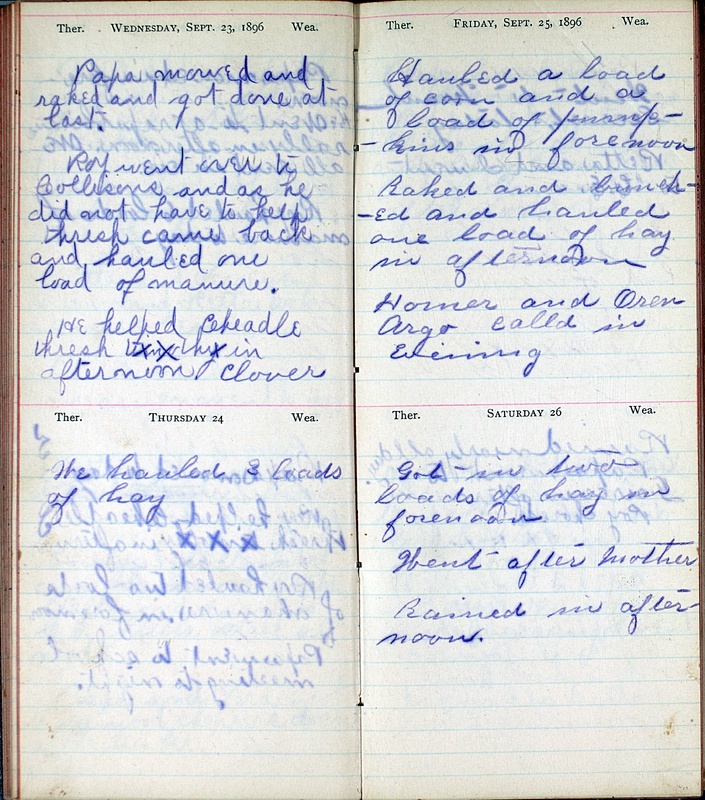 Ther. WEDNESDAY, SEPT. 23, 1896 Wea.
Papa mowed and
raked and got done at
last.
Roy went over to
Collisons and as he
did not have to help
thresh came back
and hauled one
load of manure.
He helped Cheadle
thresh in
afternoon clover
Ther. THURSDAY 24 Wea.
We hauled 3 loads
of hay
Ther. FRIDAY, SEPT. 25, 1896 Wea.
Hauled a load
of corn and a
load of pump-
-kins in forenoon
Raked and bunch-
-ed and hauled
one load of hay
in afternoon
Homer and Oren
Argo calld in
Evening
Ther. SATURDAY 26 Wea.
Got in two
loads of hay in
forenoon
Went after Mother
Rained in after-
noon.